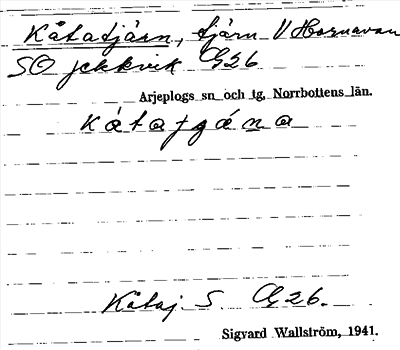 Kåtatjärn, tjärn V Hornavan
SO Jckkvik G26
Arjeplogs sn och tg, Norrbottens län.
Kåtaj. S. G26.
Sigvard Wallström, 1941.